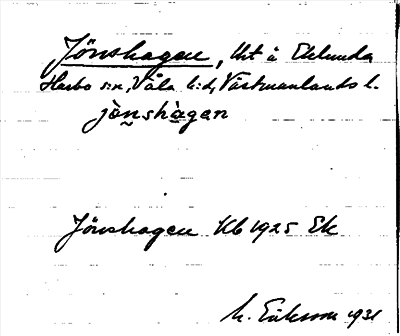 Jönshagen, lht å Eklunda
Harbo s:n, Våla h:d, Västmanlands l.
jö̀nshàgen
Jönshagen Kb 1925 Ek
M. Eriksson 1931